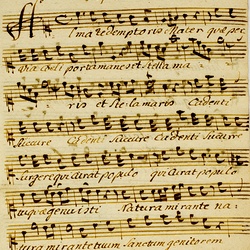 Alma redemptoris Mater quæ per
via cæli porta manes et stella ma
ris et stella maris Cadenti
succure Cadenti succure Cadenti succure
surgere qui curat populo qui curat populo
tu quæ genuisti Natura mirante na:
tura mirante tuum sanctum genitorem